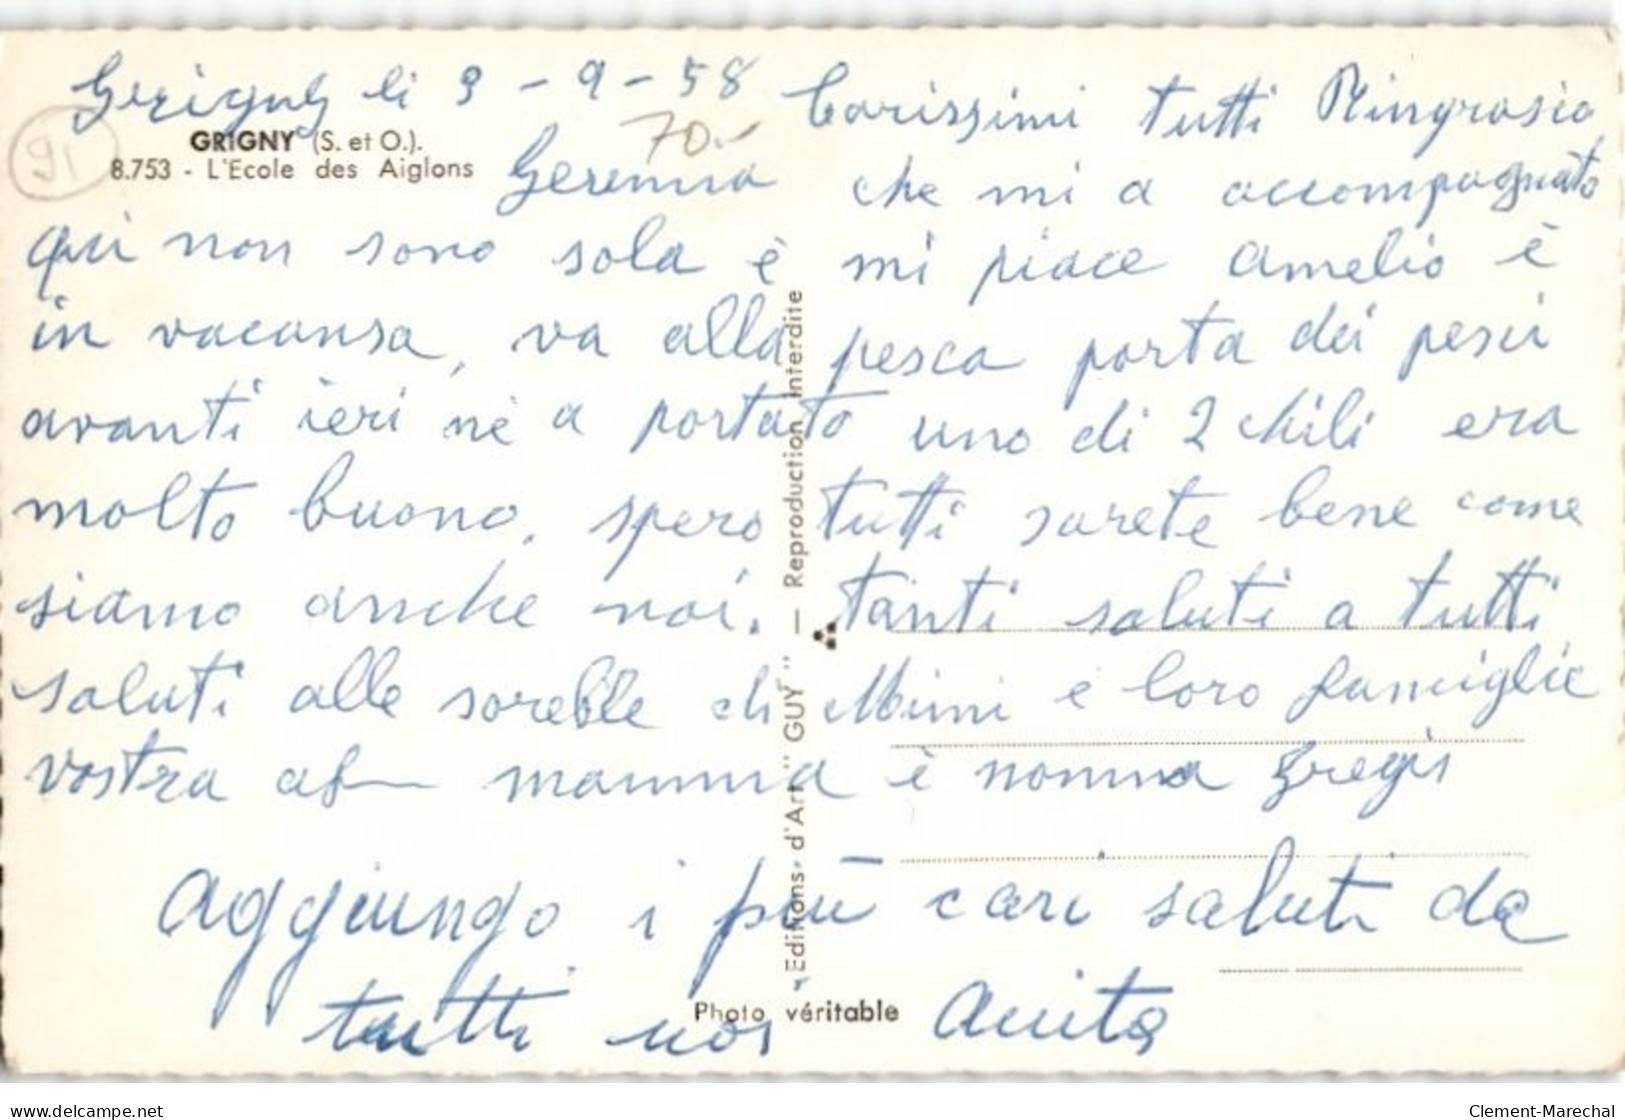 Grigny li 3 - 9 - 58 Carissimi tutti Ringrasio
GRIGNY (S. et O.).
8.753 - L'Ecole des Aiglons
91
70.-
che mi a accompagnato
qui non sono sola è mi piace amelio è
in vacansa, va alla pesca porta dei pesci
avanti ieri nè a portato uno di 2 chili era
molto buono, spero tutti sarete bene come
siamo anche noi. tanti saluti a tutti
saluti alle sorelle di Mimi e loro famiglie
vostra mamma è nonna Gregis
Aggiungo i più cari saluti da
tutti noi Anita
Editions d'Art "GUY" — Reproduction Interdite
Photo véritable
delcampe.net
Clement-Marechal